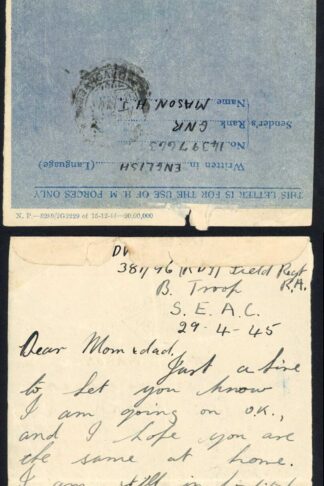 THIS LETTER IS FOR THE USE OF H. M. FORCES ONLY
Written in ENGLISH (Language)
No. 14397663
Sender's Rank GNR
Name MASON. H. J.
N. P.—8249/2G2229 of 15-12-44—20,00,000
DV
381/96 Field Regt
R.A.
B. Troop
S. E. A. C.
29-4-45
Dear Mom & dad,
Just a line
to let you know
I am going on O.K.,
and I hope you are
the same at home.
I am still in